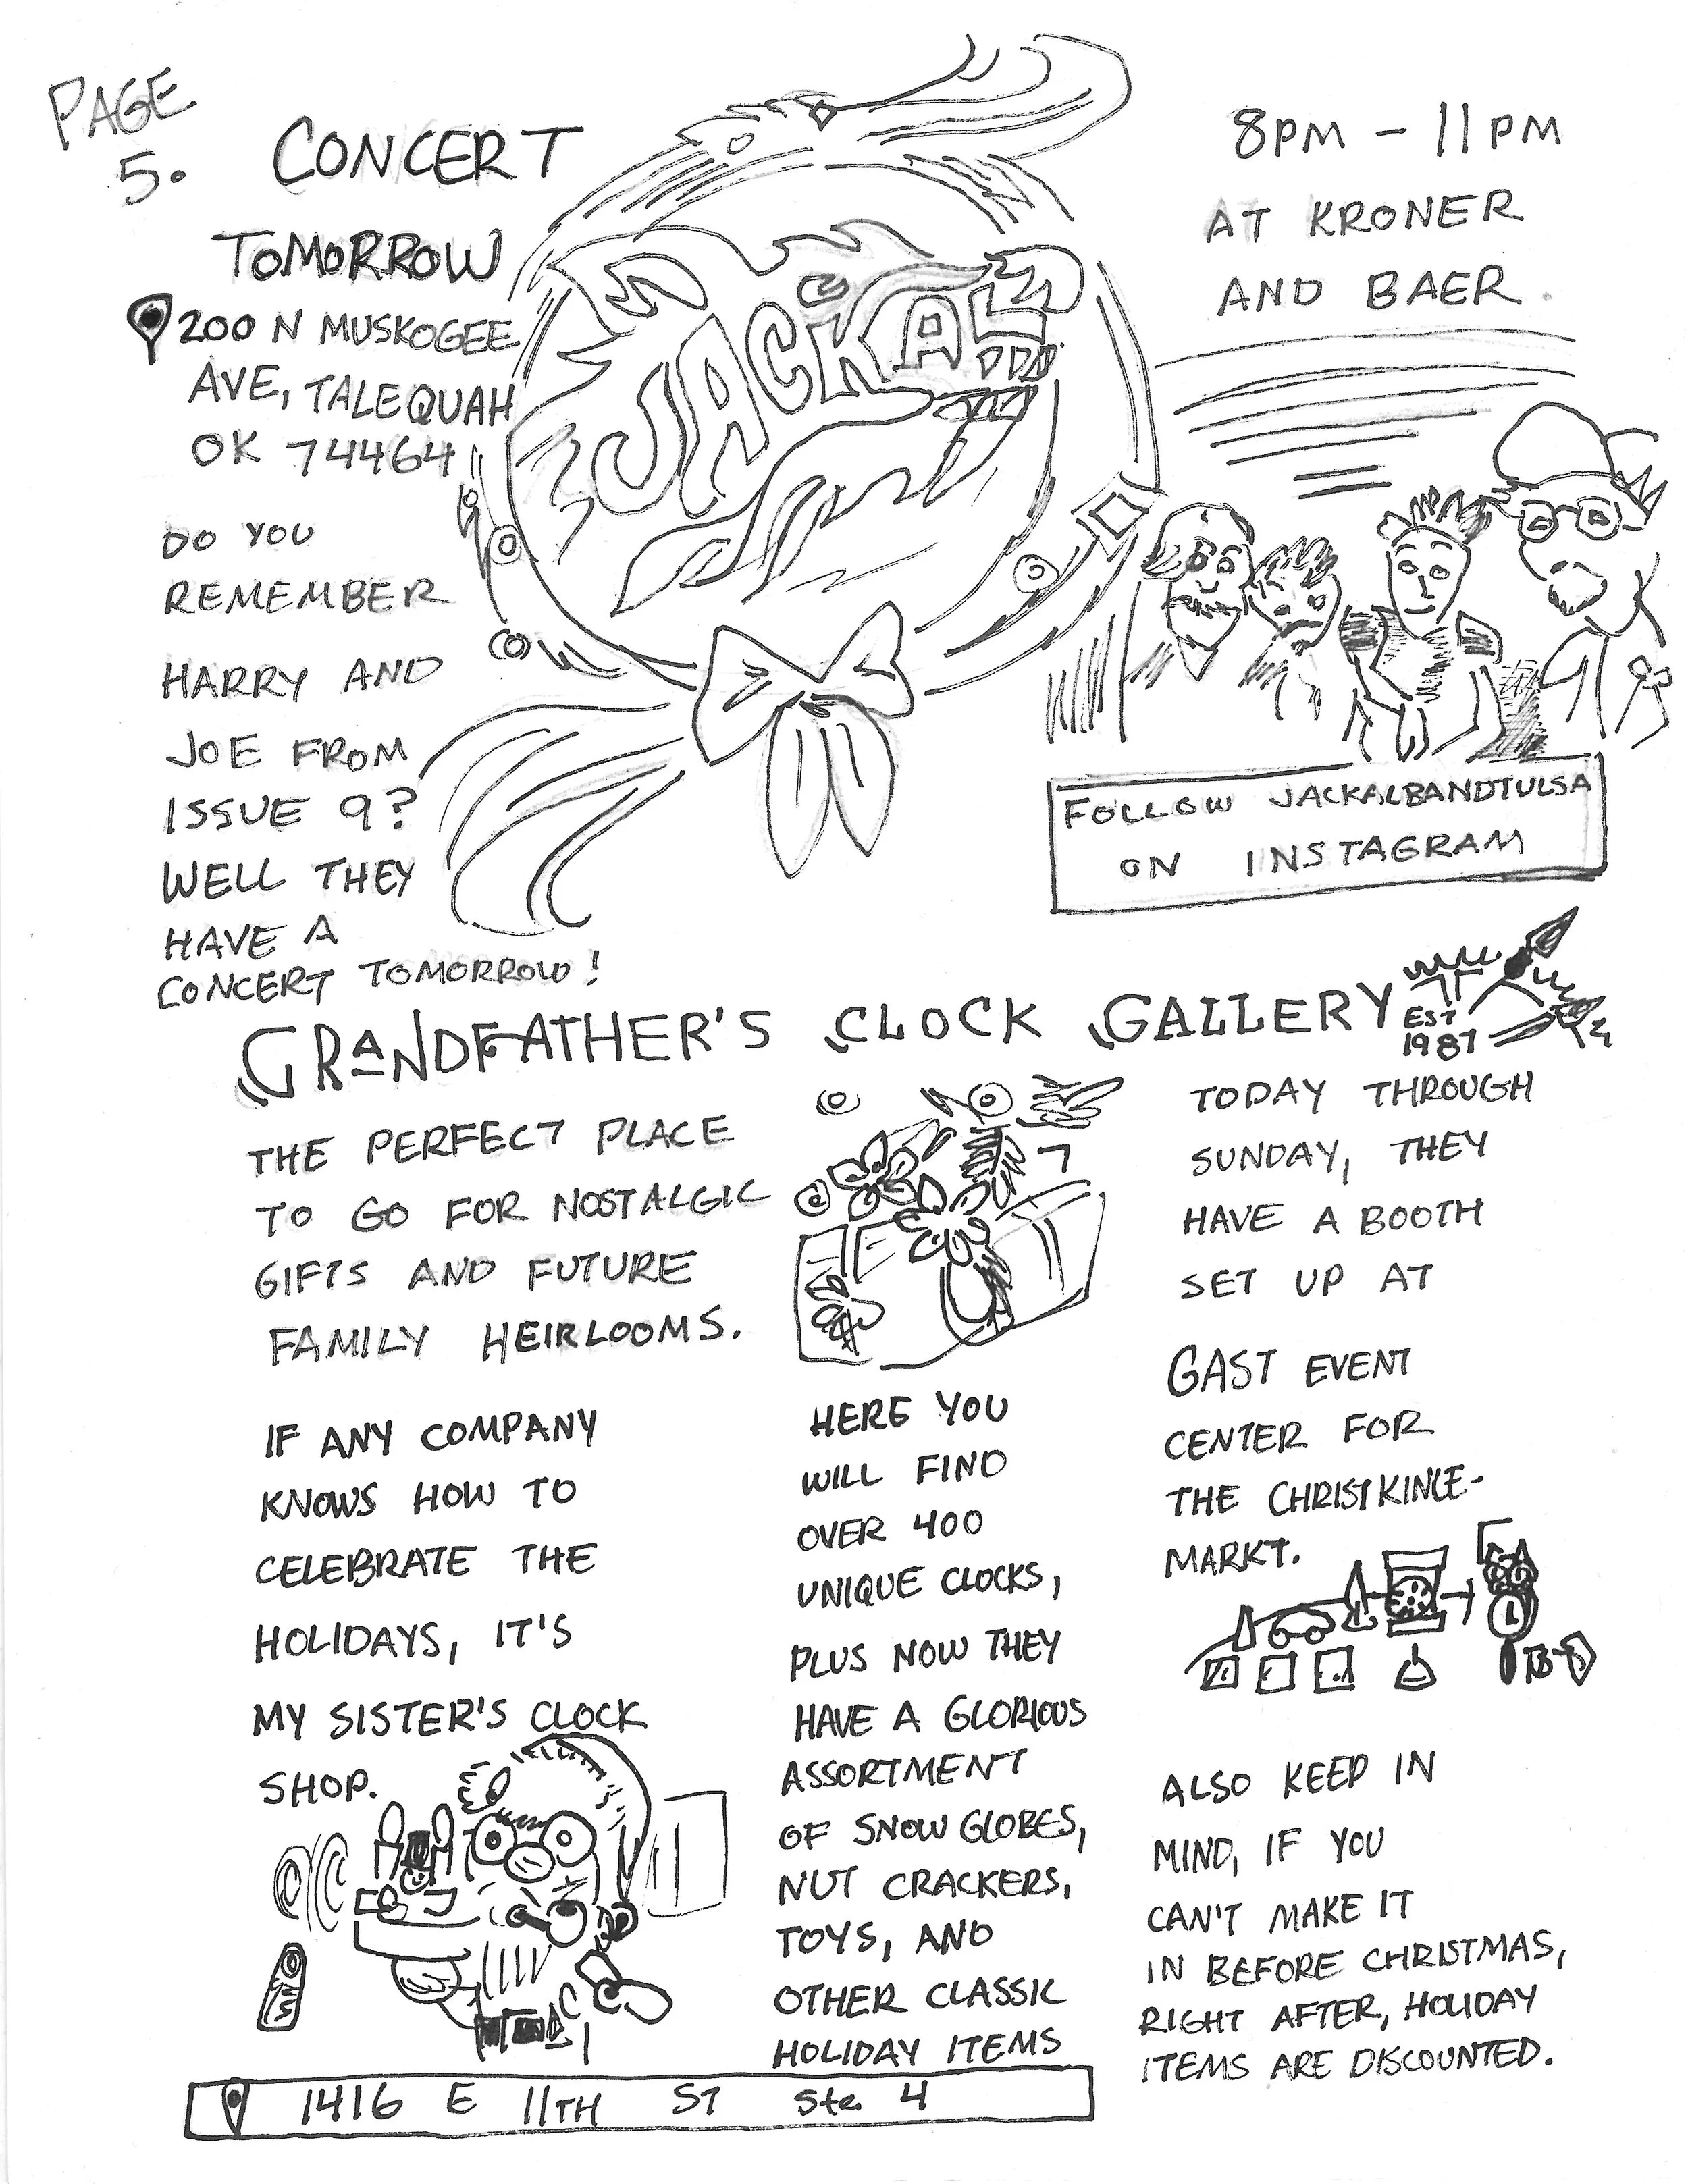 PAGE
5.
CONCERT
TOMORROW
200 N MUSKOGEE
AVE, TALEQUAH
OK 74464
DO YOU
REMEMBER
HARRY AND
JOE FROM
ISSUE 9?
WELL THEY
HAVE A
CONCERT TOMORROW!
JACKAL
8PM - 11PM
AT KRONER
AND BAER.
FOLLOW JACKALBANDTULSA
ON INSTAGRAM
GRANDFATHER'S CLOCK GALLERY
EST
1987
THE PERFECT PLACE
TO GO FOR NOSTALGIC
GIFTS AND FUTURE
FAMILY HEIRLOOMS.
IF ANY COMPANY
KNOWS HOW TO
CELEBRATE THE
HOLIDAYS, IT'S
MY SISTER'S CLOCK
SHOP.
HERE YOU
WILL FIND
OVER 400
UNIQUE CLOCKS,
PLUS NOW THEY
HAVE A GLORIOUS
ASSORTMENT
OF SNOW GLOBES,
NUT CRACKERS,
TOYS, AND
OTHER CLASSIC
HOLIDAY ITEMS
TODAY THROUGH
SUNDAY, THEY
HAVE A BOOTH
SET UP AT
GAST EVENT
CENTER FOR
THE CHRISTKINLE-
MARKT.
ALSO KEEP IN
MIND, IF YOU
CAN'T MAKE IT
IN BEFORE CHRISTMAS,
RIGHT AFTER, HOLIDAY
ITEMS ARE DISCOUNTED.
1416 E 11TH ST Ste. 4